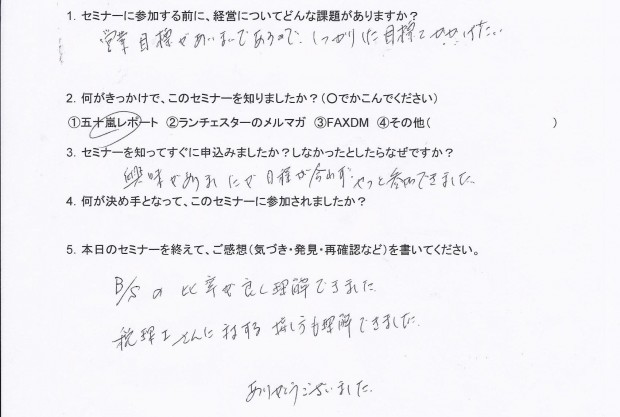 1. セミナーに参加する前に、経営についてどんな課題がありますか？
営業目標があいまいであるので、しっかりした目標をかかげたい
2. 何がきっかけで、このセミナーを知りましたか？(〇でかこんでください)
①五十嵐レポート ②ランチェスターのメルマガ ③FAXDM ④その他( )
3. セミナーを知ってすぐに申込みましたか？しなかったとしたらなぜですか？
興味があったが日程が合わず、やっと参加できました。
4. 何が決め手となって、このセミナーに参加されましたか？
5. 本日のセミナーを終えて、ご感想(気づき・発見・再確認など)を書いてください。
B/Sの比率が良く理解できました。
税理士さんに対する接し方も理解できました。
ありがとうございました。